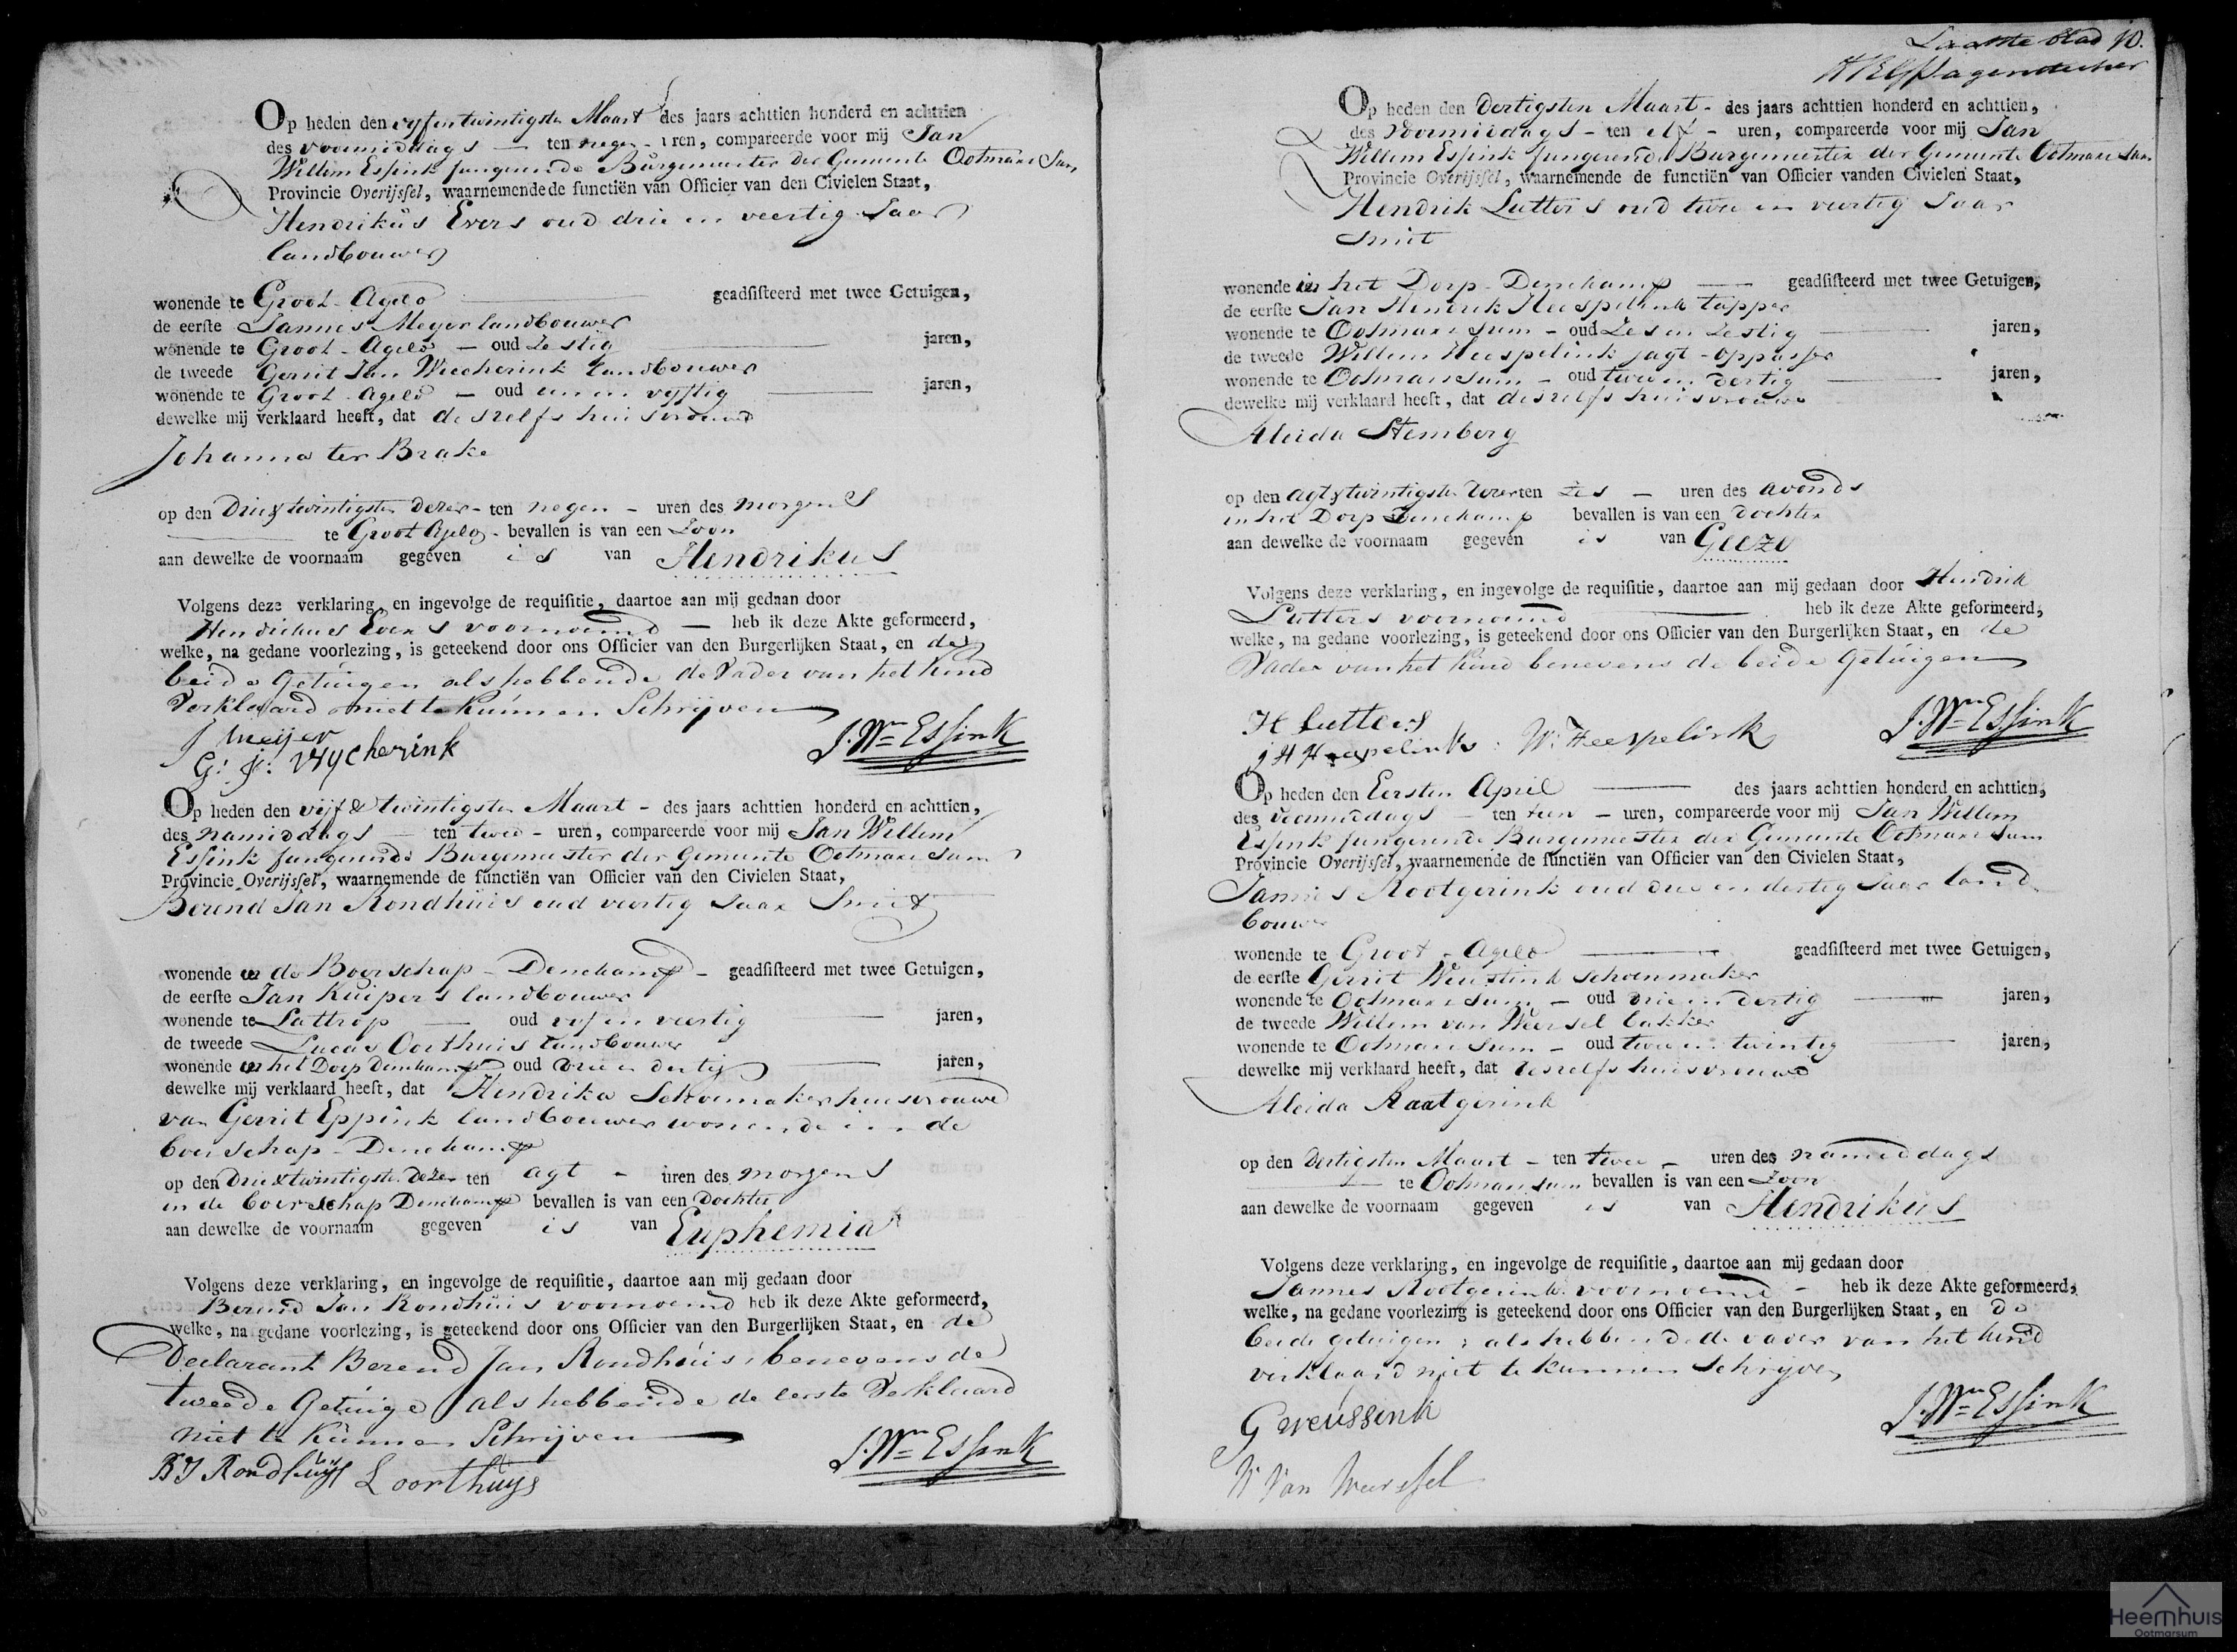 Op heden den vyf en twintigsten Maart des jaars achttien honderd en achttien
des voormiddags — ten negen - uren, compareerde voor mij Jan
Willem Essink fungerende Burgemeester der Gemeente Ootmarssum,
Provincie Overijssel, waarnemende de functiën van Officier van den Civielen Staat,
Hendrikus Evers oud drie en veertig Jaar
landbouwer
wonende te Groot-Agelo — geadsisteerd met twee Getuigen,
de eerste Jannes Meyer landbouwer
wonende te Groot-Agelo — oud Zestig — jaren,
de tweede Gerrit Jan Wiecherink landbouwer
wonende te Groot-Agelo — oud een en vyftig — jaren,
dewelke mij verklaard heeft, dat deszelfs huisvrouw
Johanna ter Brake
op den Drie & twintigsten dezer - ten negen - uren des morgens
— te Groot Agelo - bevallen is van een Zoon
aan dewelke de voornaam gegeven is van Hendrikus
Volgens deze verklaring, en ingevolge de requisitie, daartoe aan mij gedaan door
Hendrikus Evers voornoemd — heb ik deze Akte geformeerd,
welke, na gedane voorlezing, is geteekend door ons Officier van den Burgerlijken Staat, en de
beide Getuigen als hebbende de Vader van het Kind
Verklaard niet te Kunnen Schrijven
J Meijer
G: J: Wycherink J. Wm Essink
Op heden den vijf & twintigsten Maart - des jaars achttien honderd en achttien,
des namiddags — ten twee - uren, compareerde voor mij Jan Willem
Essink fungerende Burgemeester der Gemeente Ootmarssum
Provincie Overijssel, waarnemende de functiën van Officier van den Civielen Staat,
Berend Jan Rondhuis oud veertig Jaar Smit
wonende in de Boerschap - Denekamp - geadsisteerd met twee Getuigen,
de eerste Jan Kuipers landbouwer
wonende te Lattrop — oud vyf en veertig — jaren,
de tweede Lucas Oorthuis landbouwer
wonende in het Dorp Denekamp oud drie en dertig — jaren,
dewelke mij verklaard heeft, dat Hendrika Schoemaker huisvrouwe
van Gerrit Eppink landbouwer wonende in de
boerschap - Denekamp
op den Drie & twintigsten dezer ten agt - uren des morgens
in de boerschap Denekamp bevallen is van een Dochter
aan dewelke de voornaam gegeven is van Euphemia
Volgens deze verklaring, en ingevolge de requisitie, daartoe aan mij gedaan door
Berend Jan Rondhuis voornoemd heb ik deze Akte geformeerd,
welke, na gedane voorlezing, is geteekend door ons Officier van den Burgerlijken Staat, en de
Declarant Berend Jan Rondhuis, benevens de
tweede Getuige als hebbende de eerste Verklaard
niet te Kunnen Schrijven
BJ Rondhuijs L oorthuys J. Wm Essink
Laatste blad 10.
Pagenstecher
Op heden den Dertigsten Maart - des jaars achttien honderd en achttien,
des Voormiddags - ten elf - uren, compareerde voor mij Jan
Willem Essink fungerende Burgemeester der Gemeente Ootmarssum
Provincie Overijssel, waarnemende de functiën van Officier vanden Civielen Staat,
Hendrik Lutters oud twee en veertig Jaar
Smit
wonende in het Dorp - Denekamp — geadsisteerd met twee Getuigen,
de eerste Jan Hendrik Heespelink tapper
wonende te Ootmarssum - oud Zes en Zestig — jaren,
de tweede Willem Heespelink jagt-oppasser
wonende te Ootmarssum - oud twee en dertig — jaren,
dewelke mij verklaard heeft, dat deszelfs huisvrouwe
Aleida Stemberg
op den agt & twintigsten dezer ten Zes — uren des avonds
in het Dorp Denekamp bevallen is van een dochter
aan dewelke de voornaam gegeven is van Geeze
Volgens deze verklaring, en ingevolge de requisitie, daartoe aan mij gedaan door Hendrik
Lutters voornoemd — heb ik deze Akte geformeerd,
welke, na gedane voorlezing, is geteekend door ons Officier van den Burgerlijken Staat, en de
Vader van het Kind benevens de beide Getuigen
H Lutters J. Wm Essink
J H Heespelink: W: Heespelink
Op heden den Eersten April — des jaars achttien honderd en achttien,
des Voormiddags - ten tien - uren, compareerde voor mij Jan Willem
Essink fungerende Burgemeester der Gemeente Ootmarssum
Provincie Overijssel, waarnemende de functiën van Officier van den Civielen Staat,
Jannes Rootgerink oud drie en dertig Jaar land-
bouwer
wonende te Groot-Agelo — geadsisteerd met twee Getuigen,
de eerste Gerrit Weustink schoenmaker
wonende te Ootmarssum - oud drie en dertig — jaren,
de tweede Willem van Weersel bakker
wonende te Ootmarssum - oud twee en twintig — jaren,
dewelke mij verklaard heeft, dat deszelfs huisvrouwe
Aleida Raatgerink
op den Dertigsten Maart - ten twee - uren des namiddags
— te Ootmarssum bevallen is van een Zoon
aan dewelke de voornaam gegeven is van Hendrikus
Volgens deze verklaring, en ingevolge de requisitie, daartoe aan mij gedaan door
Jannes Rootgerink voornoemd - heb ik deze Akte geformeerd,
welke, na gedane voorlezing is geteekend door ons Officier van den Burgerlijken Staat, en de
beide getuigen, als hebbende de vader van het Kind
verklaard niet te kunnen schrijven
G weussink J. Wm Essink
W Van Weerssel
Heemhuis
Ootmarsum